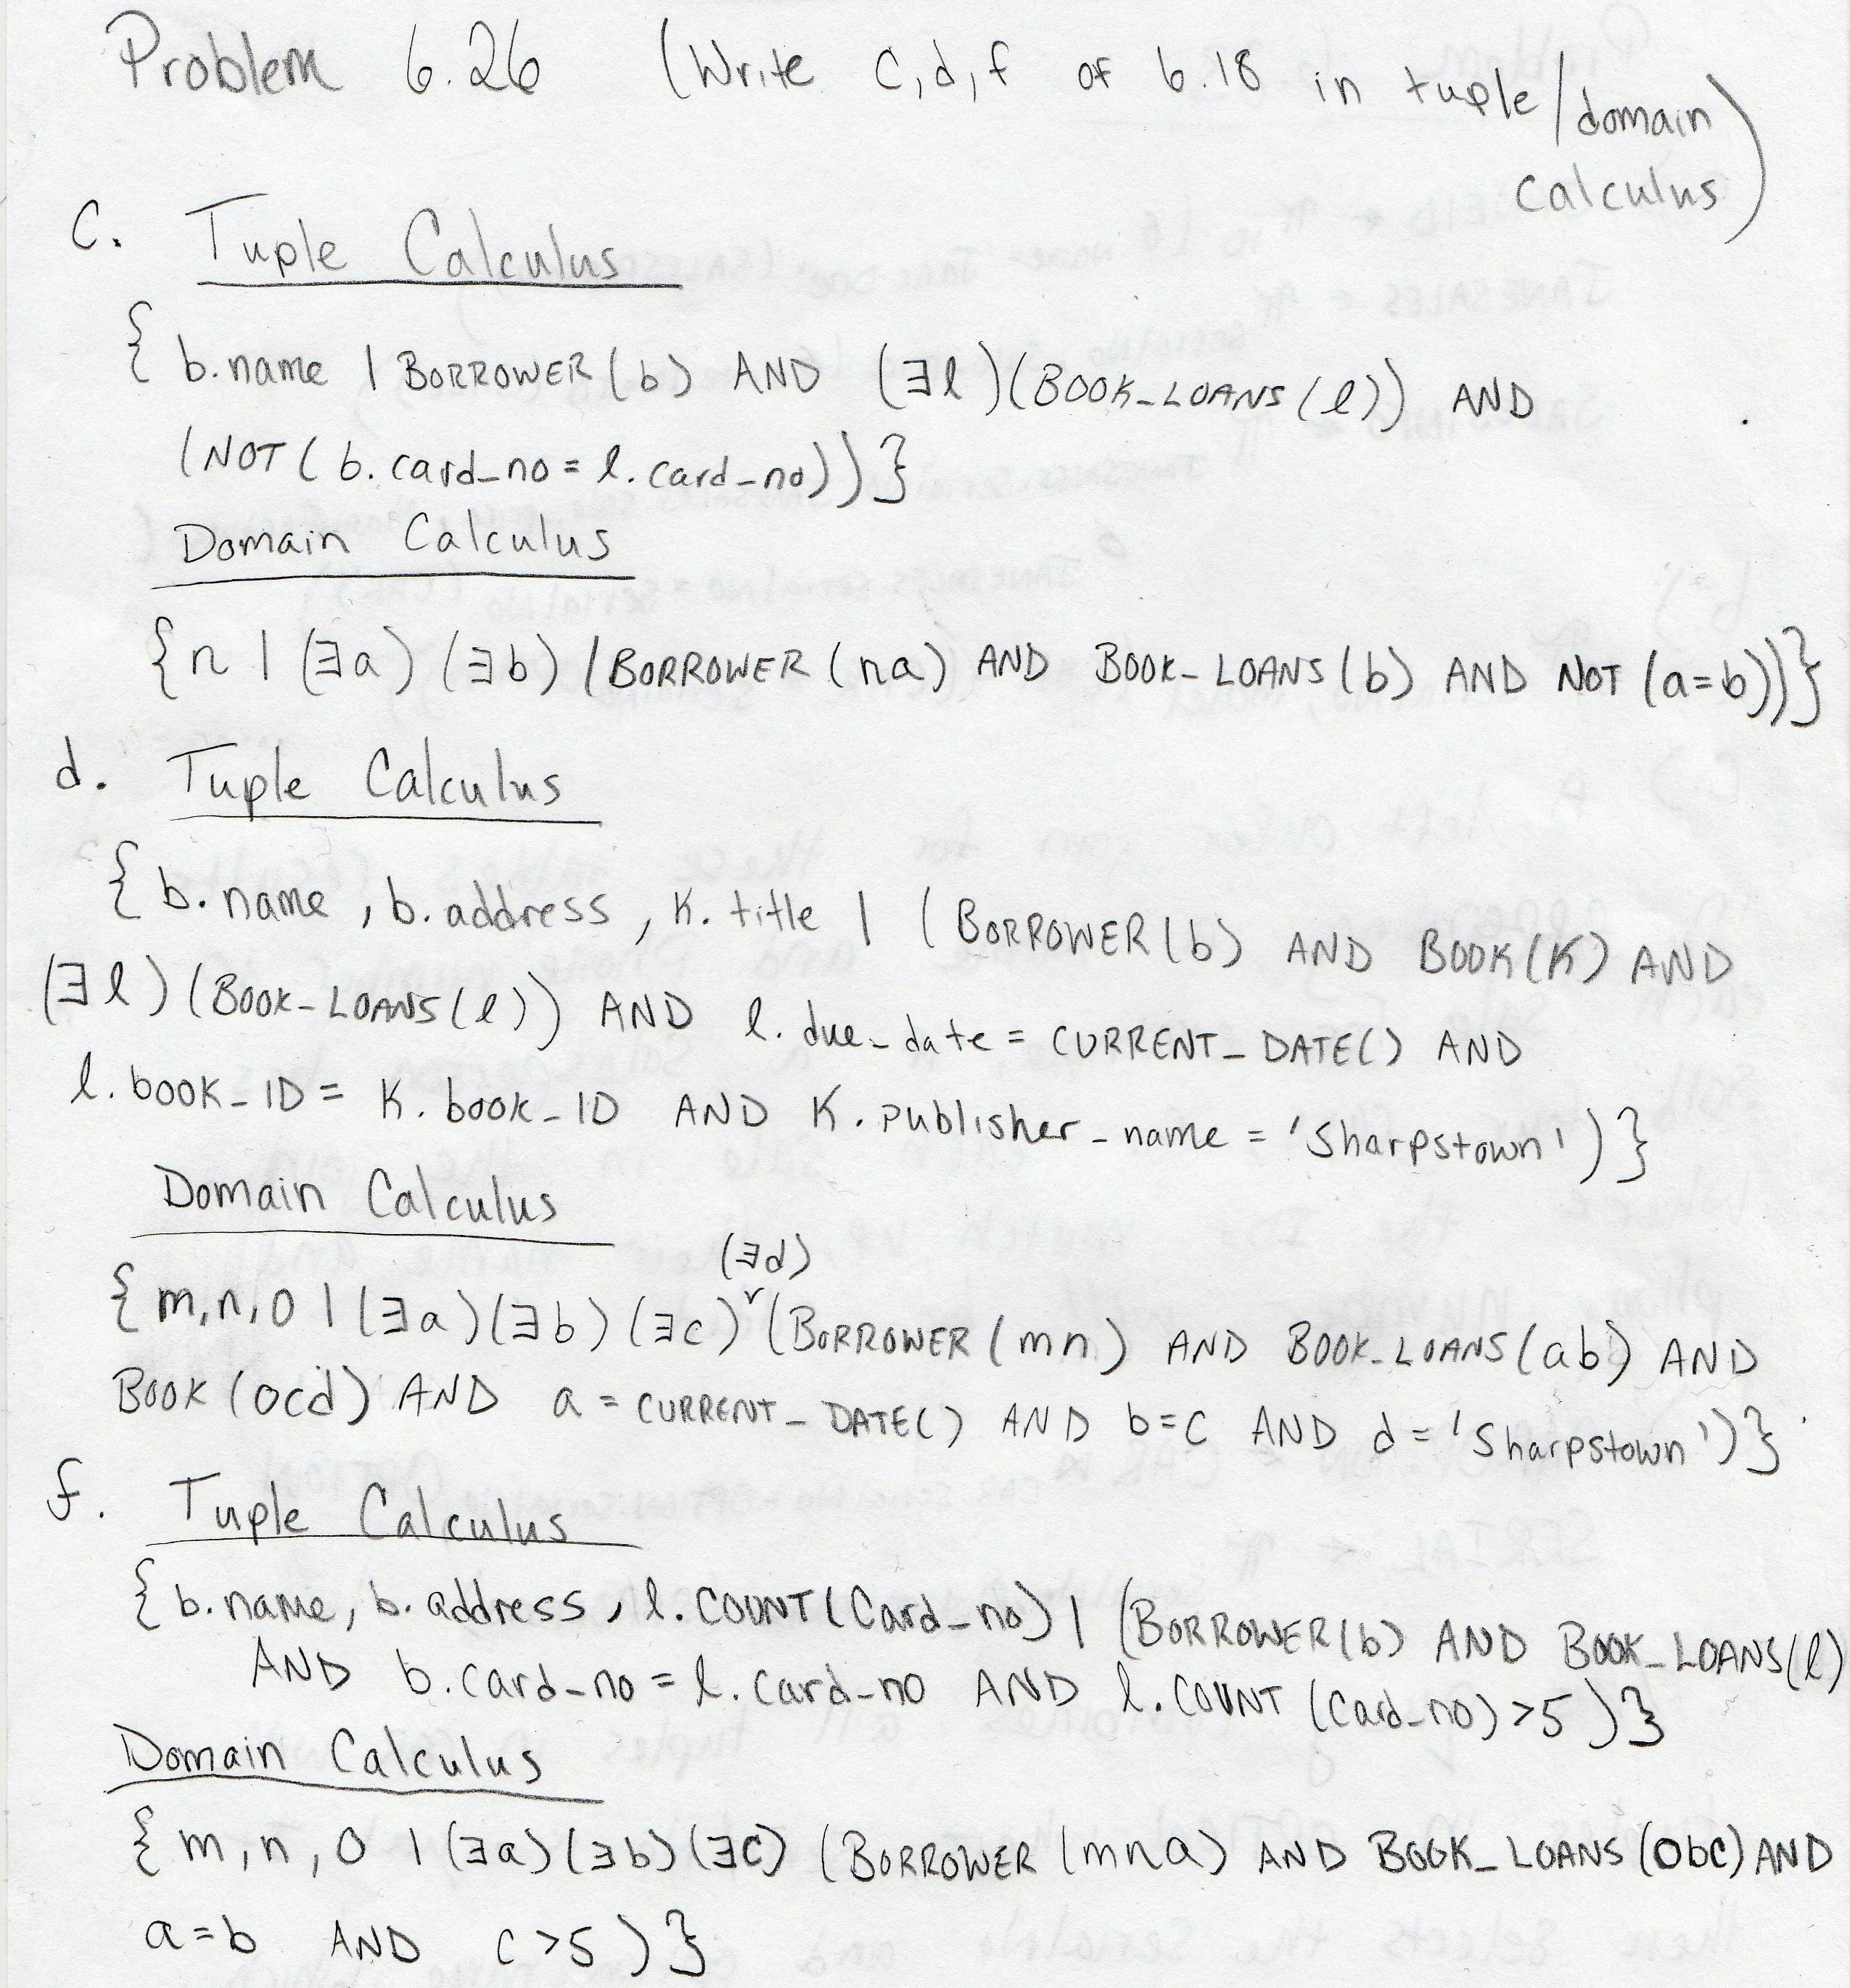 Problem 6.26 (Write c,d,f of 6.18 in tuple/domain
calculus)
c. Tuple Calculus
{ b.name | BORROWER(b) AND (∃l)(BOOK_LOANS(l)) AND
(NOT(b.card_no = l.card_no))}
Domain Calculus
{n | (∃a)(∃b)(BORROWER(na) AND BOOK_LOANS(b) AND NOT(a=b))}
d. Tuple Calculus
{ b.name, b.address, K.title | (BORROWER(b) AND BOOK(K) AND
(∃l)(BOOK_LOANS(l)) AND l.due_date = CURRENT_DATE() AND
l.book_ID = K.book_ID AND K.publisher_name = 'Sharpstown')}
Domain Calculus
(∃d)
{m,n,o | (∃a)(∃b)(∃c) (BORROWER(mn) AND BOOK_LOANS(ab) AND
BOOK(ocd) AND a = CURRENT_DATE() AND b=c AND d='Sharpstown')}
f. Tuple Calculus
{b.name, b.address, l.COUNT(Card_no) | (BORROWER(b) AND BOOK_LOANS(l)
AND b.card_no = l.card_no AND l.COUNT(Card_no)>5)}
Domain Calculus
{m,n,o | (∃a)(∃b)(∃c) (BORROWER(mna) AND BOOK_LOANS(obc) AND
a=b AND c>5)}